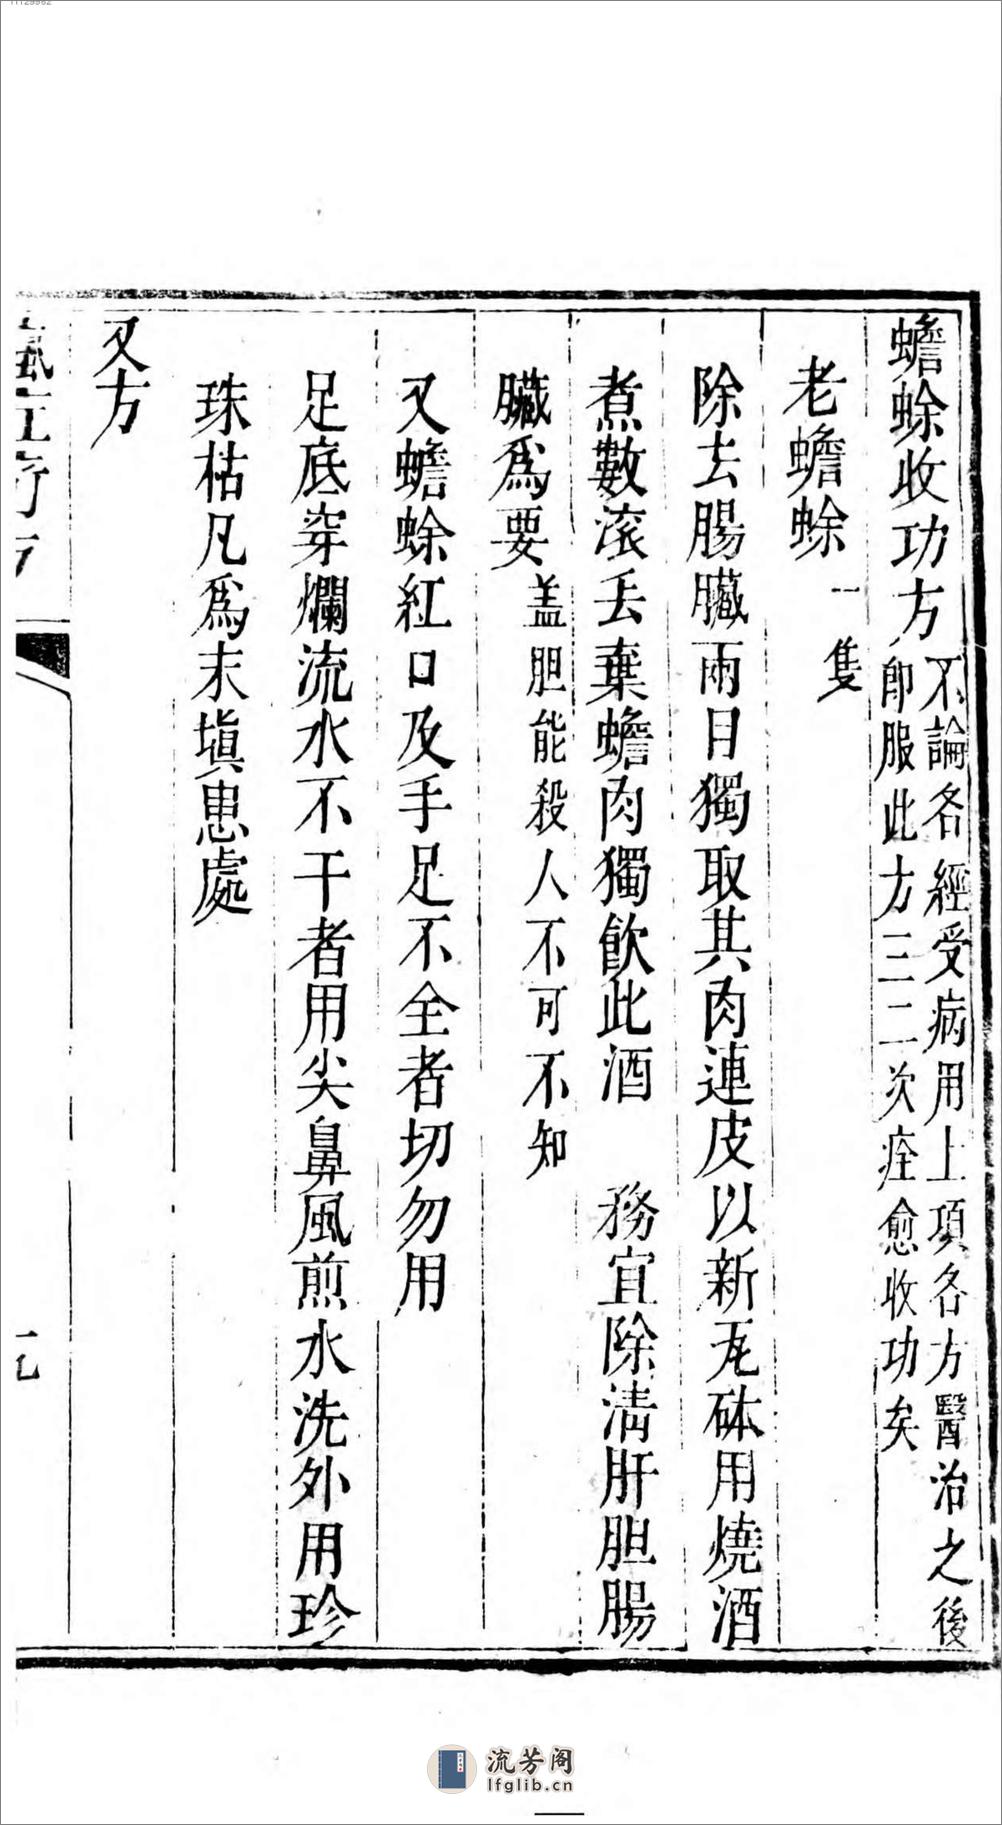 蟾蜍收功方不論各經受病用上項各方醫治之後
即服此方三二次痊愈收功矣
老蟾蜍一隻
除去腸臟兩日獨取其肉連皮以新瓦砵用燒酒
煮數滚丢棄蟾肉獨飲此酒 務宜除清肝胆腸
臟爲要盖胆能殺人不可不知
又蟾蜍紅口及手足不全者切勿用
足底穿爛流水不干者用尖鼻風煎水洗外用珍
珠枯凡爲末填患處
又方
流芳阁
lfglib.cn